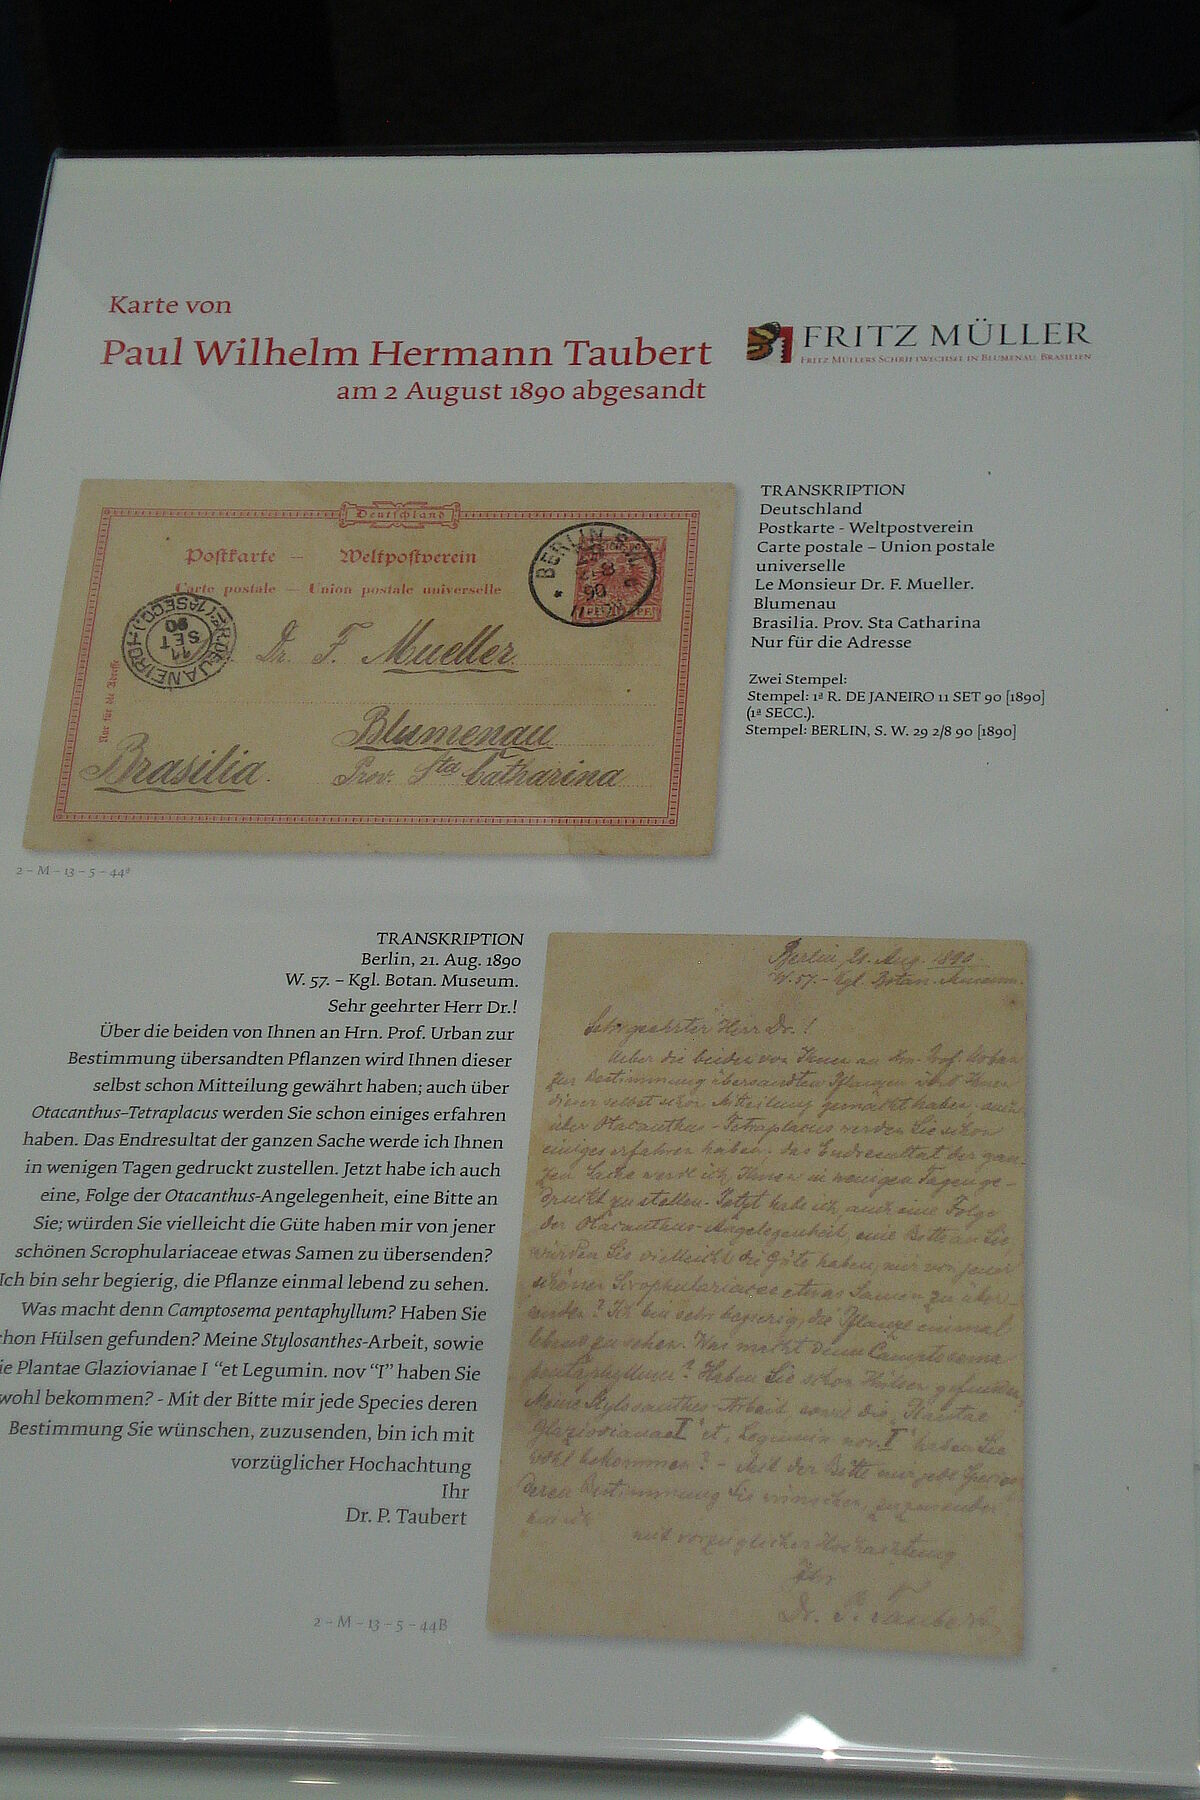 Karte von
Paul Wilhelm Hermann Taubert
am 2 August 1890 abgesandt
FRITZ MÜLLER
FRITZ MÜLLERS SCHRIFTWECHSEL IN BLUMENAU, BRASILIEN
Deutschland
Postkarte — Weltpostverein
Carte postale — Union postale universelle
BERLIN S.W.
R. DE JANEIRO (1ª SECC.)
11 SET 90
Nur für die Adresse
Dr. F. Mueller
Blumenau
Brasilia. Prov. Sta Catharina
2 – M – 13 – 5 – 44ª
TRANSKRIPTION
Deutschland
Postkarte - Weltpostverein
Carte postale – Union postale
universelle
Le Monsieur Dr. F. Mueller.
Blumenau
Brasilia. Prov. Sta Catharina
Nur für die Adresse
Zwei Stempel:
Stempel: 1ª R. DE JANEIRO 11 SET 90 [1890]
(1ª SECC.).
Stempel: BERLIN, S. W. 29 2/8 90 [1890]
TRANSKRIPTION
Berlin, 21. Aug. 1890
W. 57. – Kgl. Botan. Museum.
Sehr geehrter Herr Dr.!
Über die beiden von Ihnen an Hrn. Prof. Urban zur
Bestimmung übersandten Pflanzen wird Ihnen dieser
selbst schon Mitteilung gewährt haben; auch über
Otacanthus–Tetraplacus werden Sie schon einiges erfahren
haben. Das Endresultat der ganzen Sache werde ich Ihnen
in wenigen Tagen gedruckt zustellen. Jetzt habe ich auch
eine, Folge der Otacanthus-Angelegenheit, eine Bitte an
Sie; würden Sie vielleicht die Güte haben mir von jener
schönen Scrophulariaceae etwas Samen zu übersenden?
Ich bin sehr begierig, die Pflanze einmal lebend zu sehen.
Was macht denn Camptosema pentaphyllum? Haben Sie
hon Hülsen gefunden? Meine Stylosanthes-Arbeit, sowie
ie Plantae Glaziovianae I “et Legumin. nov “I” haben Sie
wohl bekommen? - Mit der Bitte mir jede Species deren
Bestimmung Sie wünschen, zuzusenden, bin ich mit
vorzüglicher Hochachtung
Ihr
Dr. P. Taubert
2 – M – 13 – 5 – 44B
Berlin, 21. Aug. 1890.
W. 57. – Kgl. Botan. Museum.
Sehr geehrter Herr Dr.!
Ueber die beiden von Ihnen an Hrn. Prof. Urban
zur Bestimmung übersandten Pflanzen wird Ihnen
dieser selbst schon Mitteilung gemacht haben, auch
über Otacanthus – Tetraplacus werden Sie schon
einiges erfahren haben. Das Endresultat der gan-
zen Sache werde ich Ihnen in wenigen Tagen ge-
druckt zu stellen. Jetzt habe ich, auch eine Folge
der Otacanthus-Angelegenheit, eine Bitte an Sie,
würden Sie vielleicht die Güte haben, mir von jener
schönen Scrophulariacee etwas Samen zu über-
senden? Ich bin sehr begierig, die Pflanze einmal
lebend zu sehen. Was macht denn Camptosema
pentaphyllum? Haben Sie schon Hülsen gefunden?
Meine Stylosanthes-Arbeit, sowie die „Plantae
Glaziovianae I“ et „Legumin. nov. I“ haben Sie
wohl bekommen? – Mit der Bitte mir jede Species
deren Bestimmung Sie wünschen, zuzusenden
bin ich
mit vorzüglicher Hochachtung
Ihr
Dr. P. Taubert